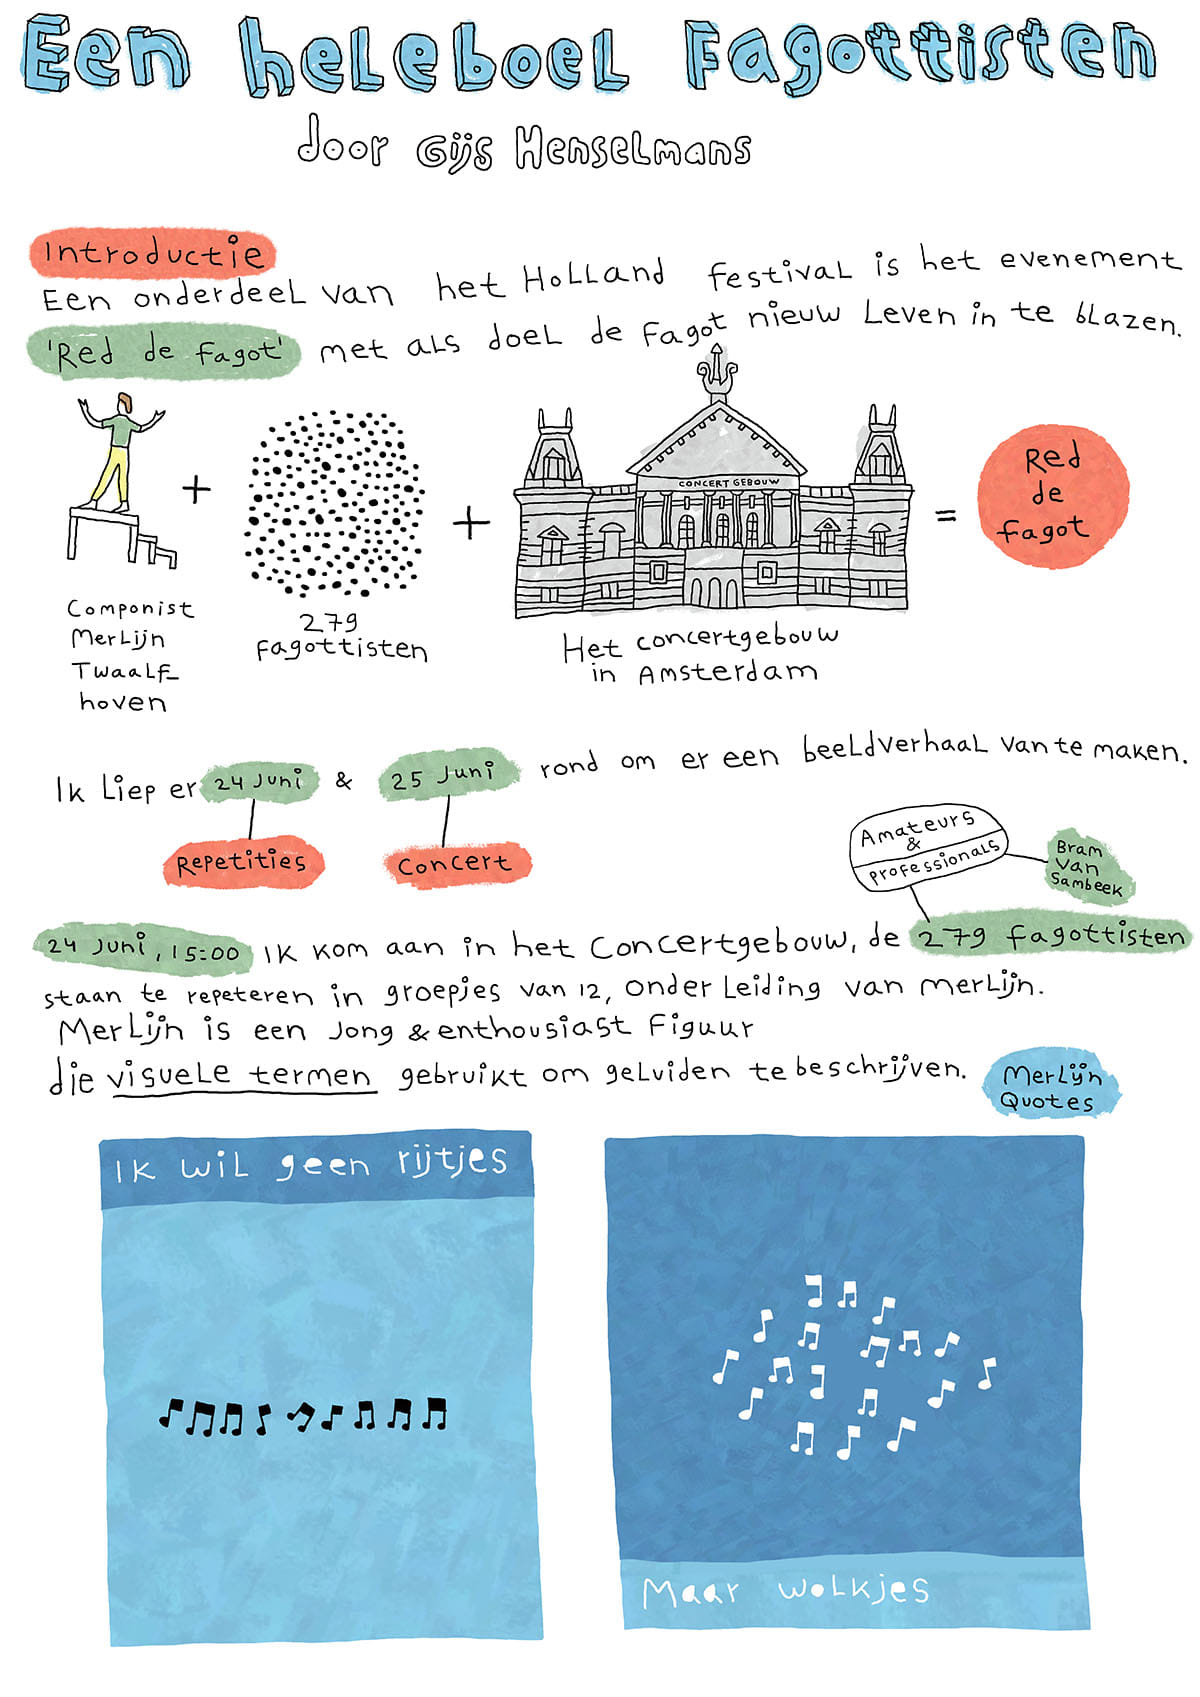 Een heleboel Fagottisten
door Gijs Henselmans
Introductie
Een onderdeel van het Holland Festival is het evenement
'Red de Fagot' met als doel de Fagot nieuw Leven in te blazen.
CONCERTGEBOUW
Red
de
Fagot
Componist
Merlijn
Twaalf-
hoven
279
Fagottisten
Het concertgebouw
in Amsterdam
Ik Liep er 24 Juni & 25 Juni rond om er een beeldverhaal van te maken.
Repetities
Concert
Amateurs
&
professionals
Bram
van
Sambeek
24 Juni, 15:00 Ik kom aan in het Concertgebouw, de 279 Fagottisten
staan te repeteren in groepjes van 12, onder Leiding van merlijn.
Merlijn is een Jong & enthousiast Figuur
die visuele termen gebruikt om geluiden te beschrijven.
Merlijn
Quotes
Ik wil geen rijtjes
Maar wolkjes